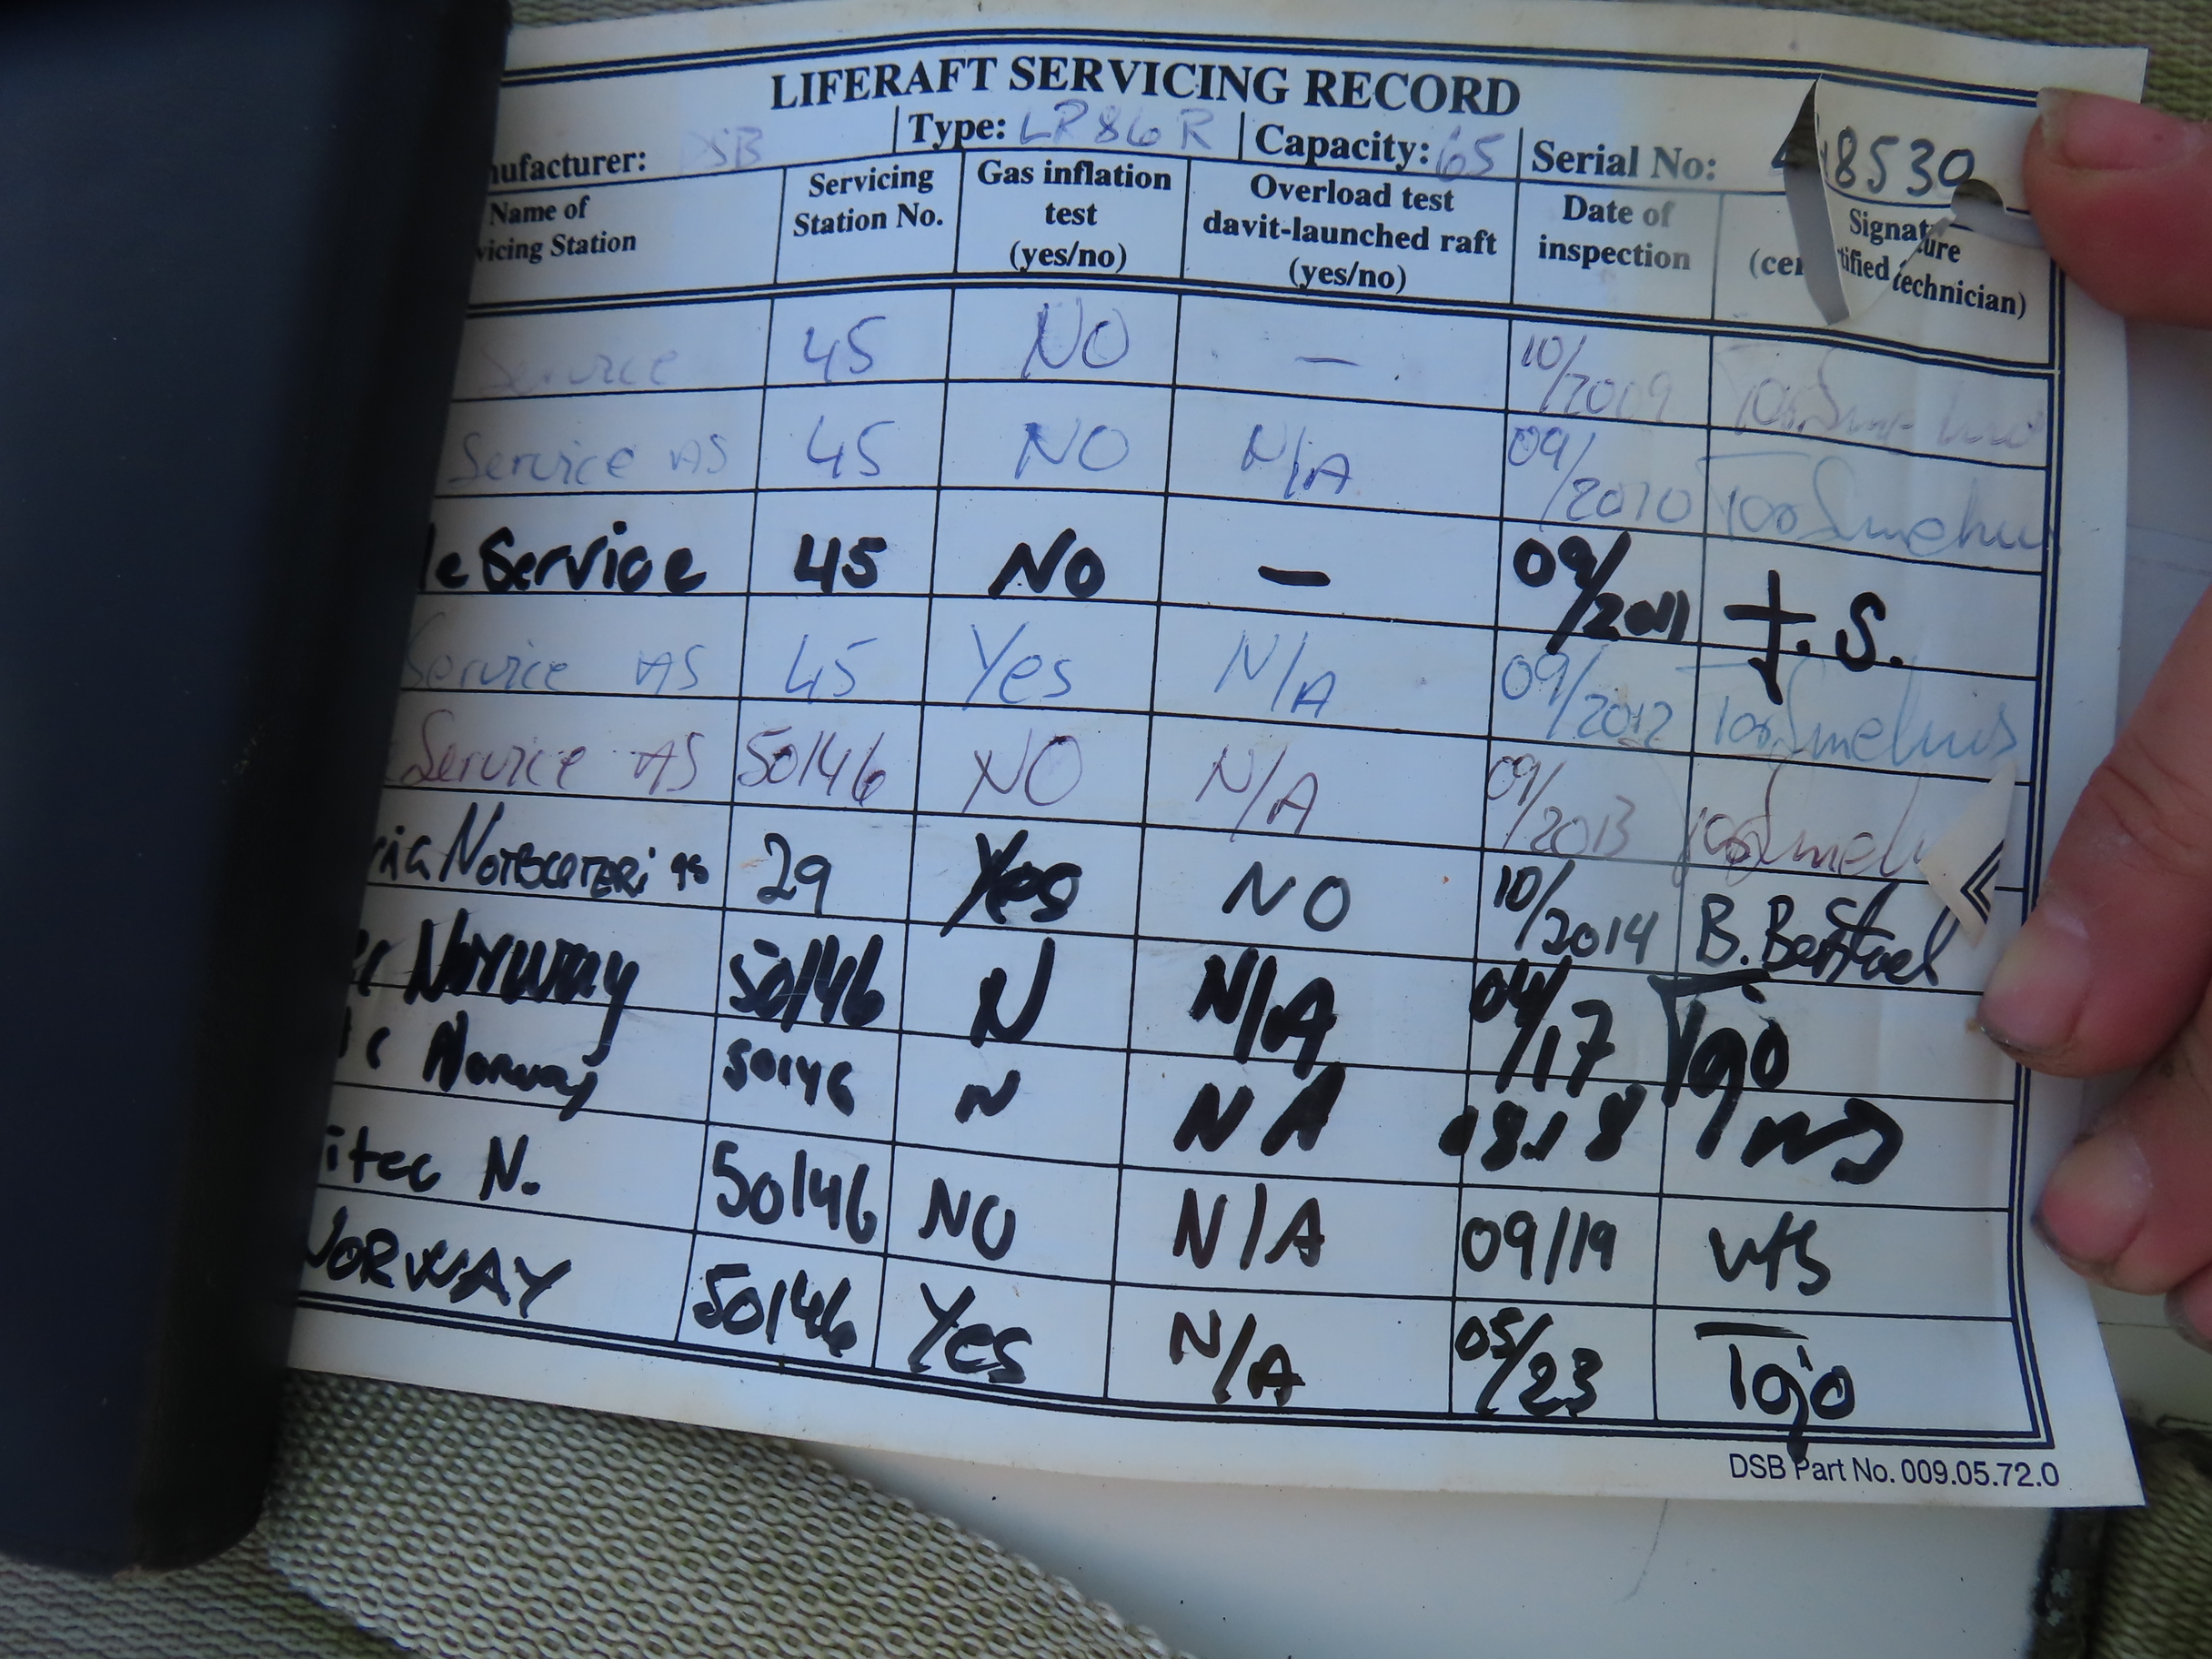 LIFERAFT SERVICING RECORD
nufacturer: DSB Type: LR86R Capacity: 65 Serial No: 8530
Name of vicing Station Servicing Station No. Gas inflation test (yes/no) Overload test davit-launched raft (yes/no) Date of inspection Signature (certified technician)
Service 45 NO — 10/2009
Service AS 45 NO N/A 09/2010 Tor Smehu
le Service 45 NO — 09/2011 T.S.
Service AS 45 Yes N/A 09/2012 Tor Smehus
Service AS 50146 NO N/A 09/2013 Tor Smeh
29 Yes NO 10/2014
Norway 50146 N N/A 04/17 Tgo
c Norway 50146 N NA 0818
itec N. 50146 NO N/A 09/19
NORWAY 50146 Yes N/A 05/23 Tgo
DSB Part No. 009.05.72.0